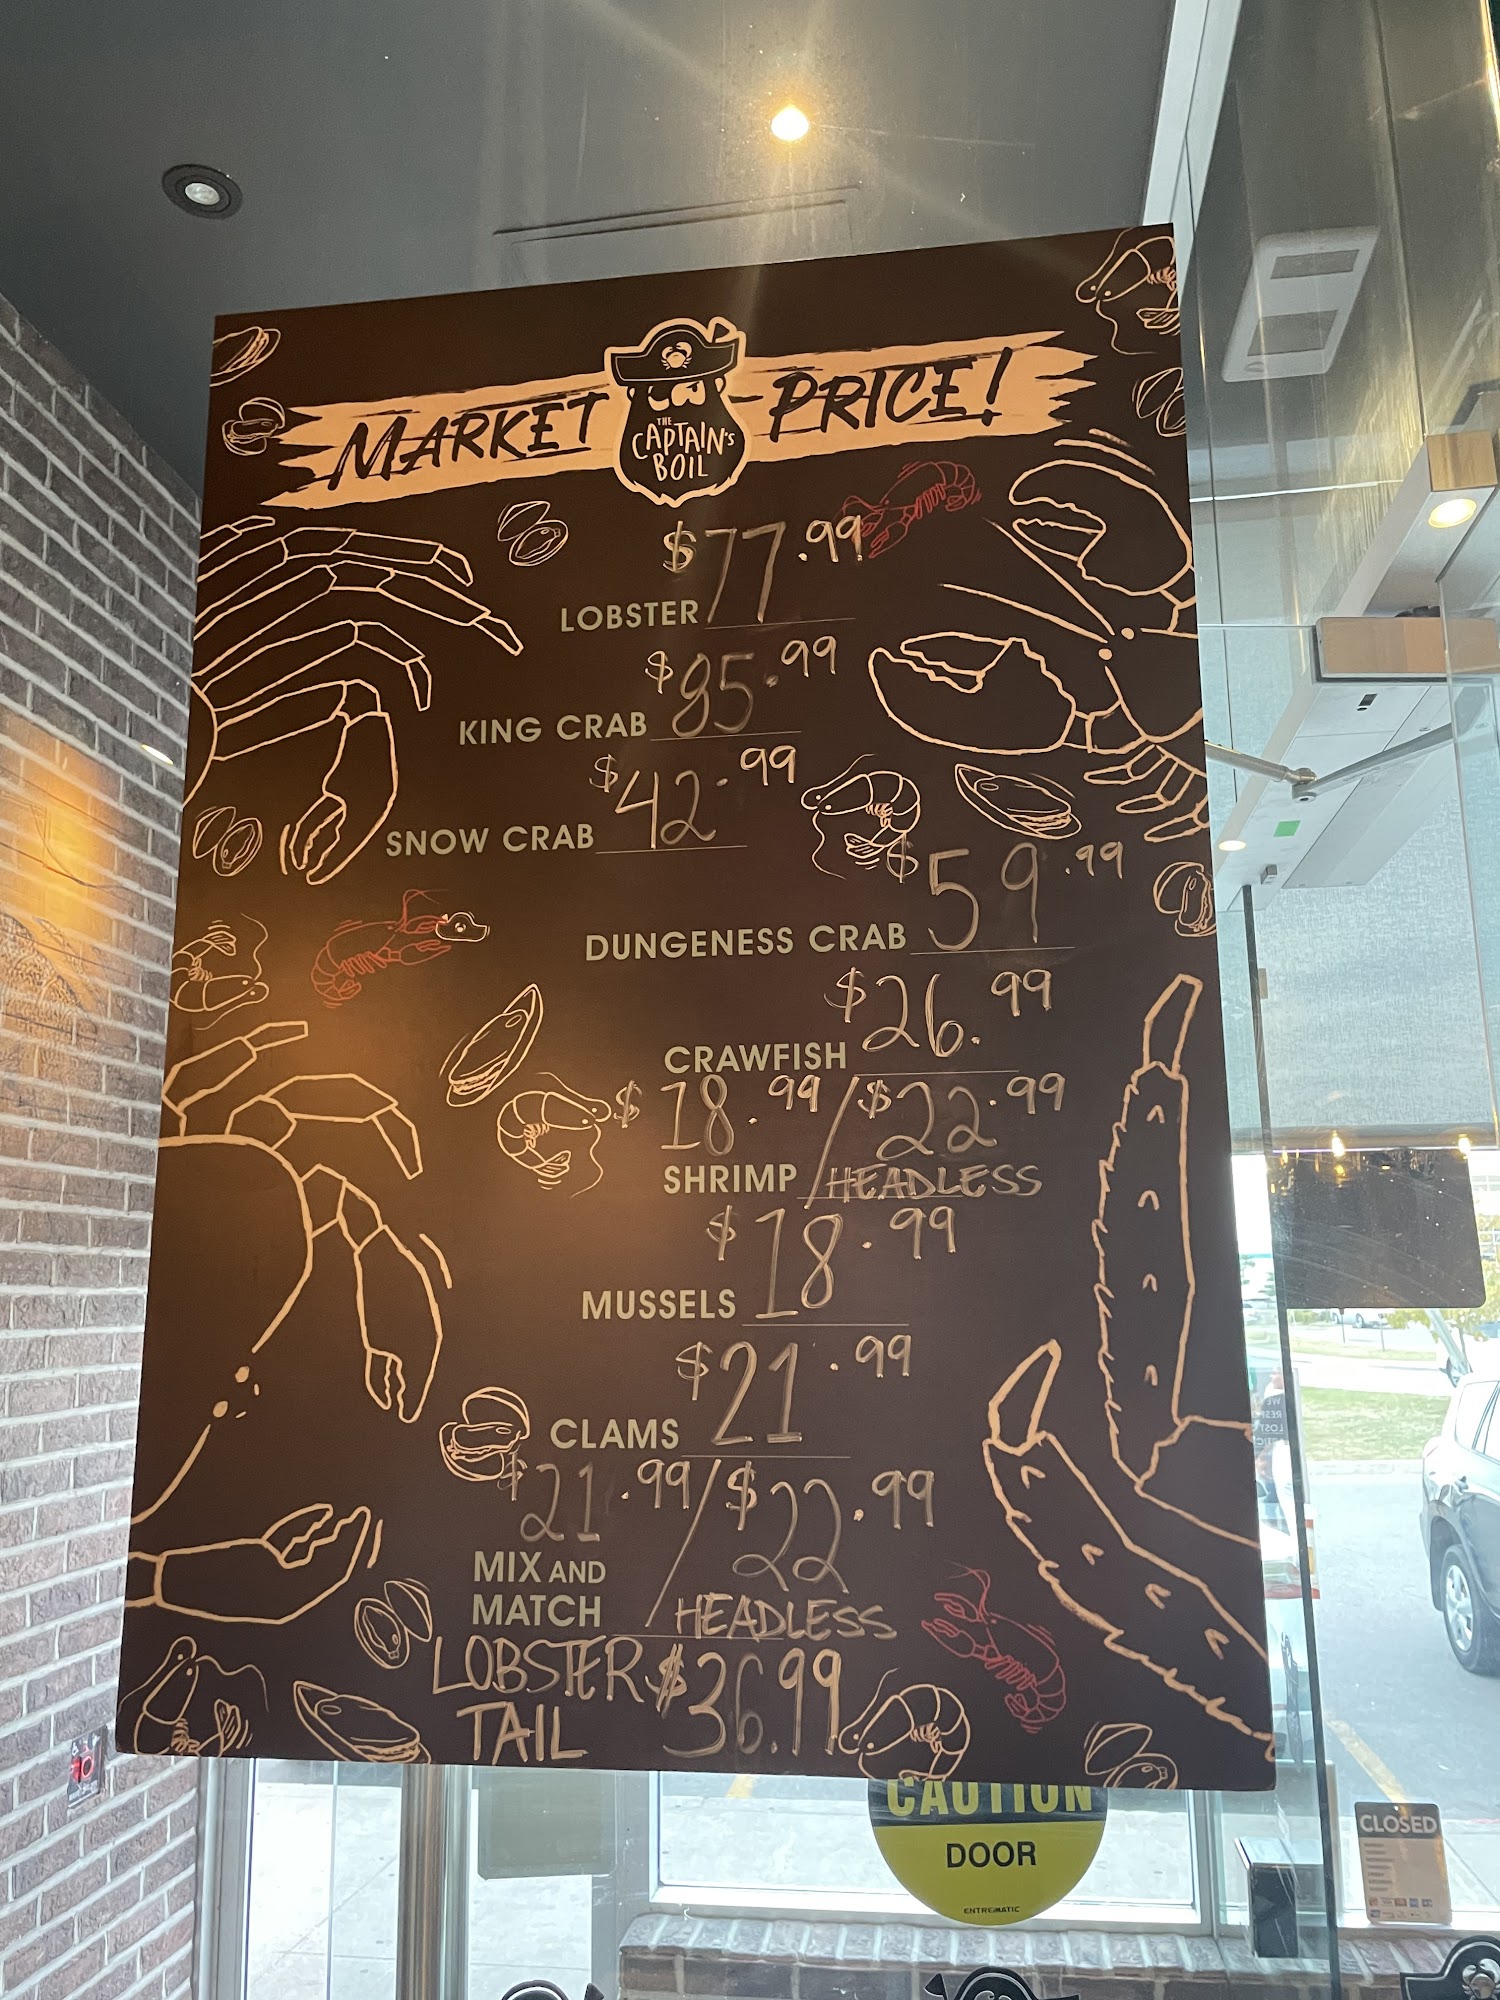 MARKET PRICE!
THE
CAPTAIN'S
BOIL
$77.99
LOBSTER
$85.99
KING CRAB
$42.99
SNOW CRAB
$59.99
DUNGENESS CRAB
$26.99
CRAWFISH
$18.99/$22.99
SHRIMP HEADLESS
$18.99
MUSSELS
$21.99
CLAMS
$21.99/$22.99
MIX AND
MATCH HEADLESS
LOBSTER $36.99
TAIL
CAUTION
DOOR
ENTREMATIC
CLOSED